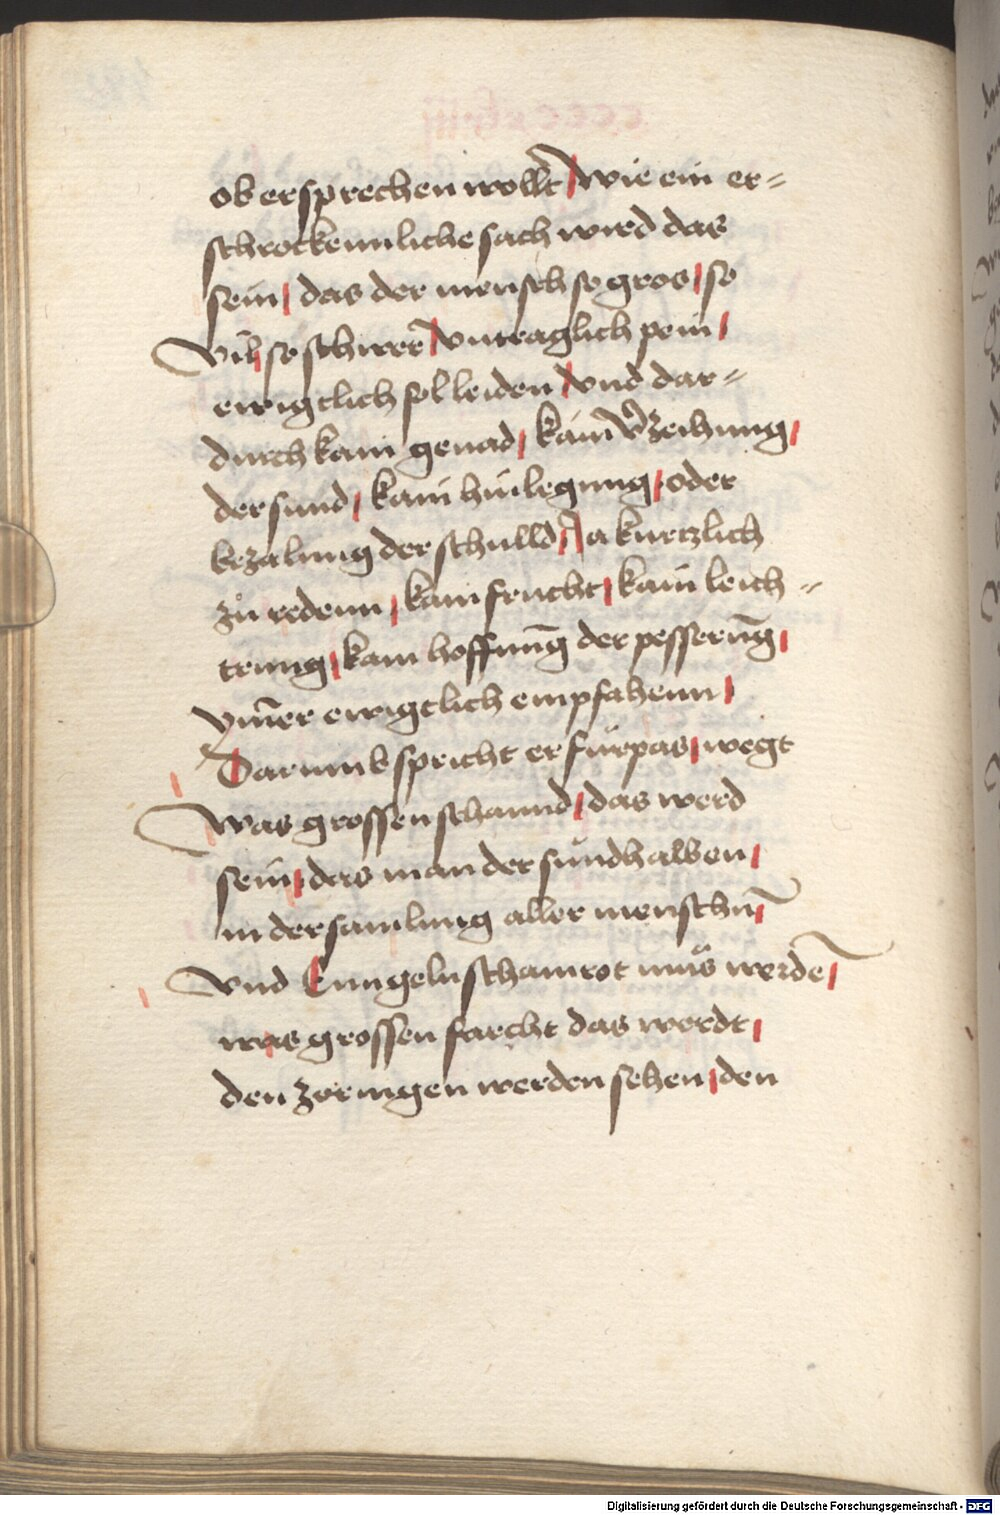 ob er sprechen wollt | wie ein er=
schrockennliche sach wird das
sein | das der mensch so gros | so
vil | so schwer | vntraglich pein |
ewigclich sol leiden | vnd dar=
durch kain genad | kain v̾zeihung |
der sund | kain hinlegung | oder
bezalung der schulld | Ja kurtzlich
zů redenn | kain frucht | kain leich=
trung | kain hoffnūg der pesserūg |
ym̄er ewigclich empfahenn |
Darumb spricht er fürpas | wegt
was grossen schannd | das werd
sein | das man der sündhalben |
in der samlung aller menschn̄ |
vnd Enngeln schamrot můs werdē |
was grossen farcht das werdt |
den zornigen werden sehen | den
Digitalisierung gefördert durch die Deutsche Forschungsgemeinschaft - DFG